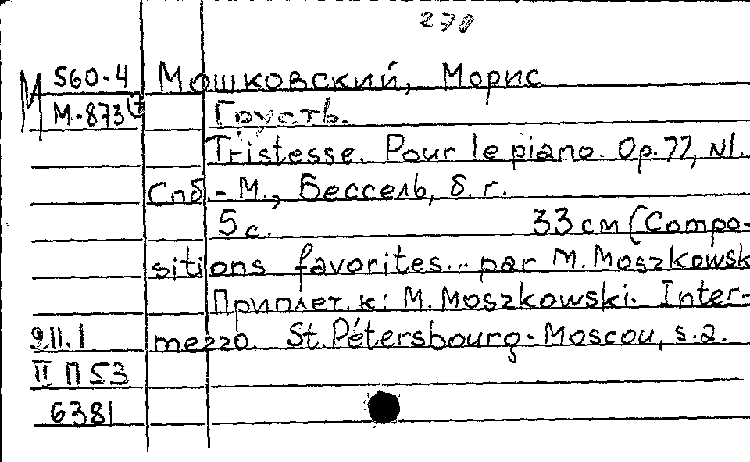 270
М 560-4 Мошковский, Морис
М-873 Грусть.
Tristesse. Pour le piano. Op. 77, N1.
Спб. - М., Бессель, б. г.
5 с. 33 см (Compo-
sitions favorites... par M. Moszkowsk
Приплет. к: M. Moszkowski. Inter-
9.II.1 mezzo. St. Pétersbourg - Moscou, s. a.
II П 53
6381